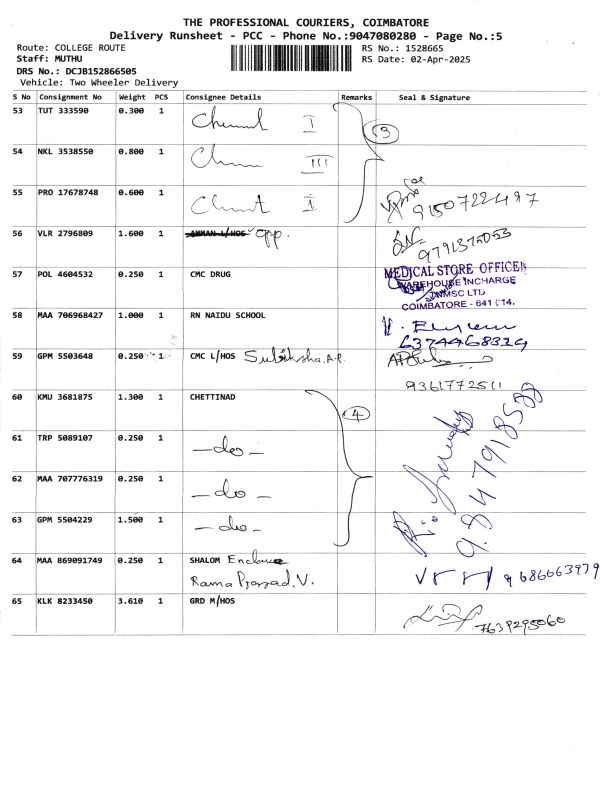 THE PROFESSIONAL COURIERS, COIMBATORE
Delivery Runsheet - PCC - Phone No.:9047080280 - Page No.:5
Route: COLLEGE ROUTE RS No.: 1528665
Staff: MUTHU RS Date: 02-Apr-2025
DRS No.: DCJB152866505
Vehicle: Two Wheeler Delivery
S No Consignment No Weight PCS Consignee Details Remarks Seal & Signature
53 TUT 333590 0.300 1 I
3
54 NKL 3538550 0.800 1 III
55 PRO 17678748 0.600 1 I
9150722497
56 VLR 2796809 1.600 1 opp.
57 POL 4604532 0.250 1 CMC DRUG
MEDICAL STORE OFFICER
WAREHOUSE INCHARGE
TNMSC LTD
COIMBATORE - 641 014.
58 MAA 706968427 1.000 1 RN NAIDU SCHOOL
6374468324
59 GPM 5503648 0.250 1 CMC L/HOS Subiksha.A.P.
9361772511
60 KMU 3681875 1.300 1 CHETTINAD
4
61 TRP 5089107 0.250 1 -do-
62 MAA 707776319 0.250 1 -do-
63 GPM 5504229 1.500 1 -do-
64 MAA 869091749 0.250 1 SHALOM Enclave
Rama Prasad.V. 9686663979
65 KLK 8233450 3.610 1 GRD M/HOS
7639295060